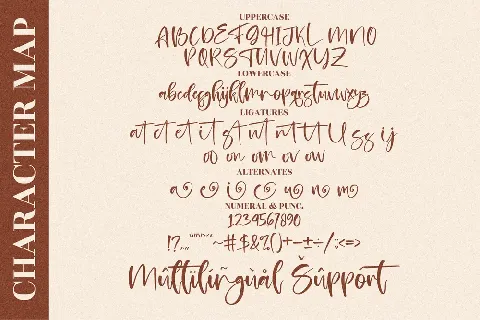 CHARACTER MAP
UPPERCASE
ABCDEFGHIJKL MNO
PQRSTUVWXYZ
LOWERCASE
abcdefghijklmnopqrstuvwxyz
LIGATURES
at ct et it st ut nt tt ll ss ij
oo on om ov ow
ALTERNATES
a e i o u n m
NUMERAL & PUNC.
1234567890
~#$&%()+-±÷/:;<=>
Múltïlíñgùål Šûppört